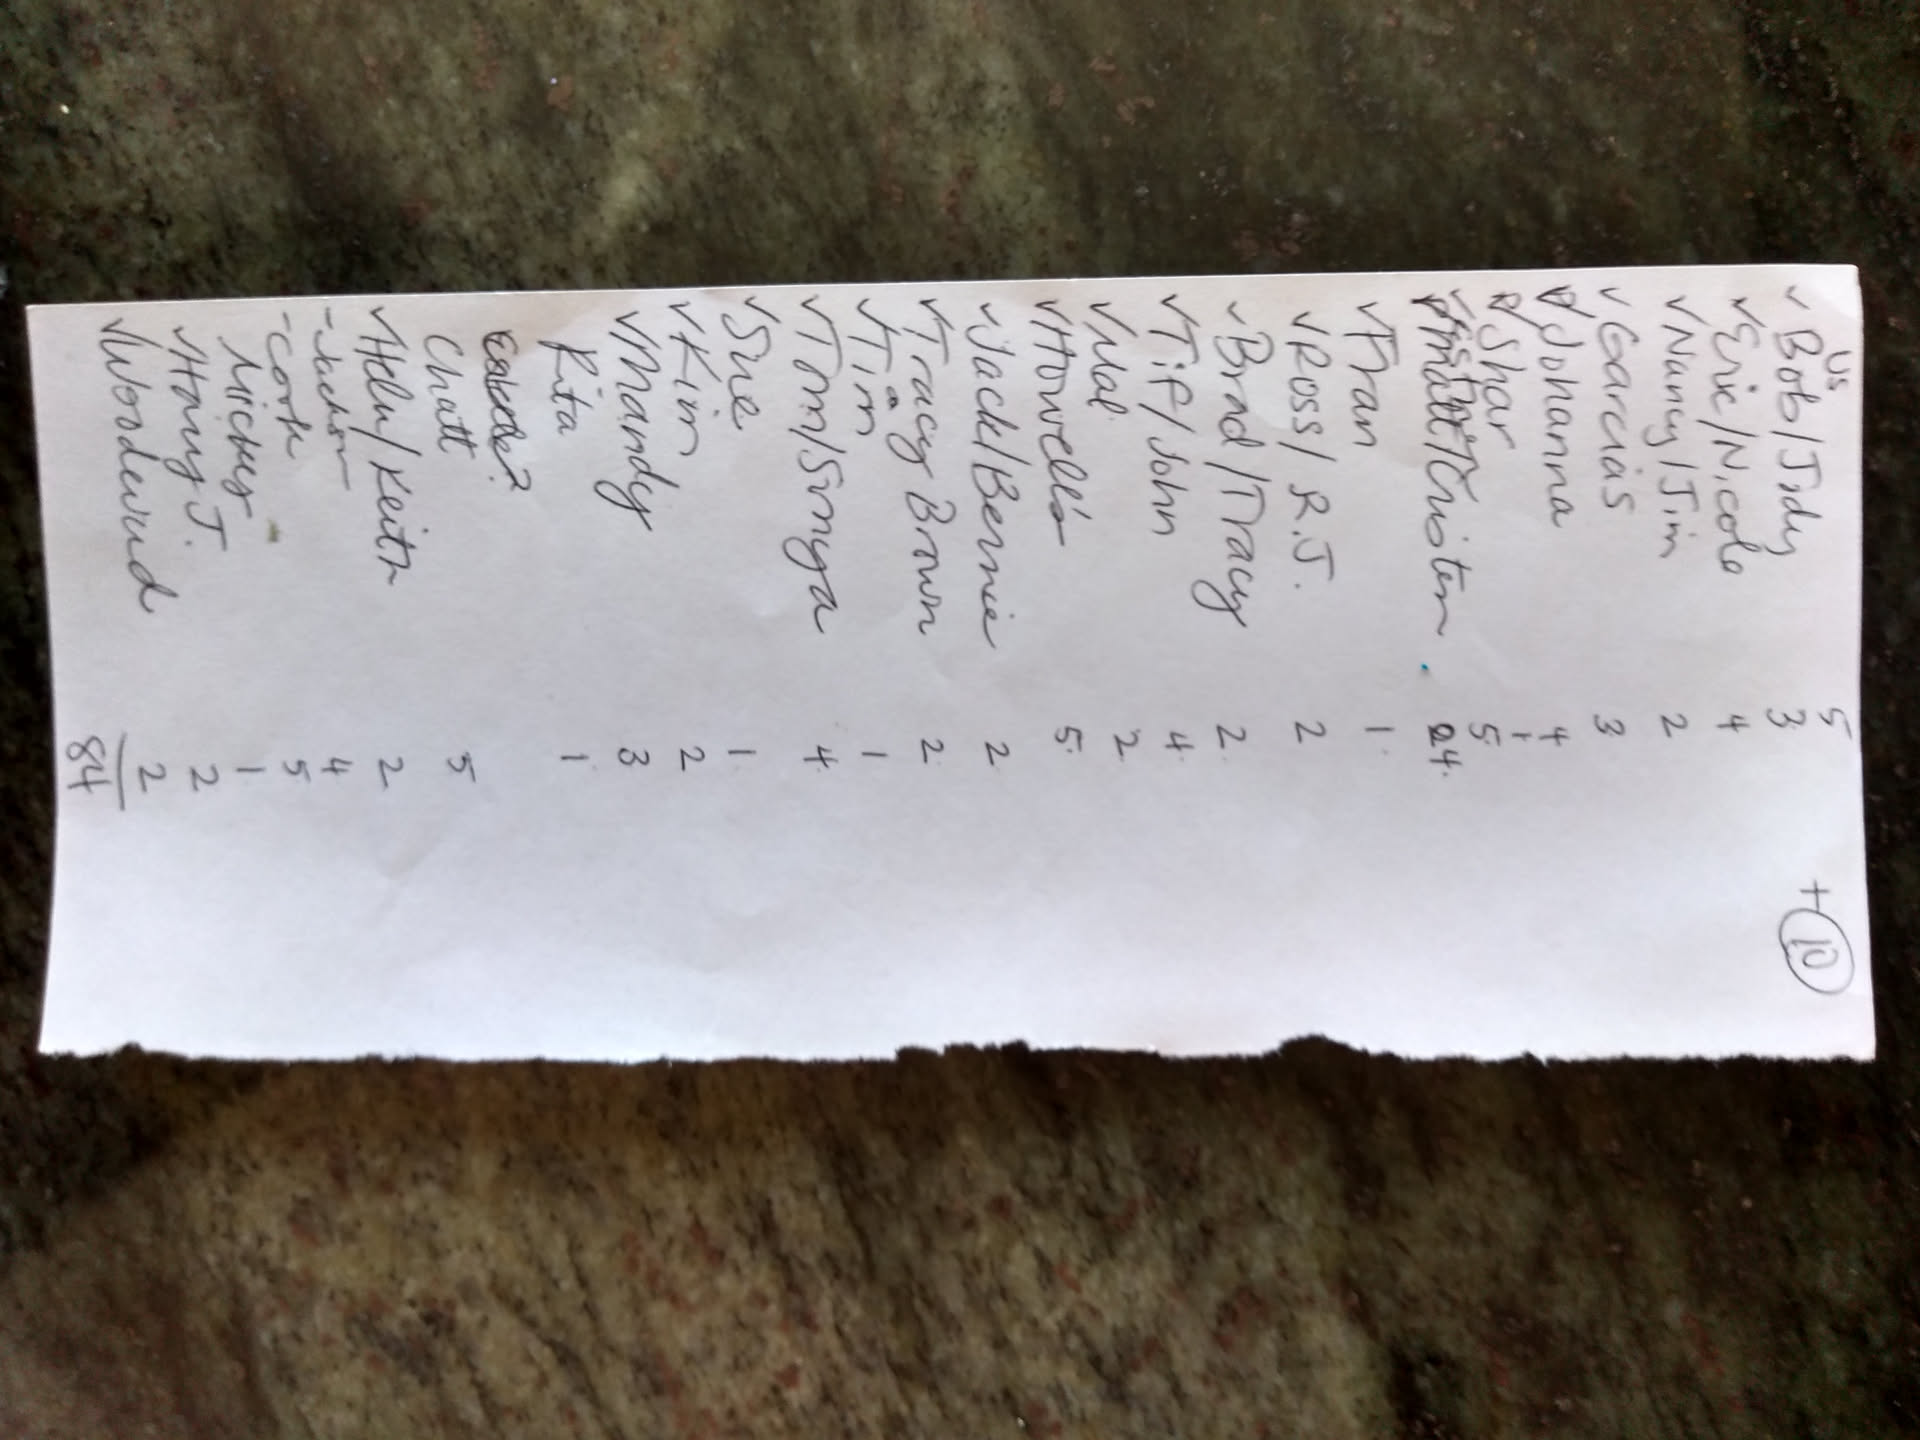 Us 5
✓ Bob/Jody 3 + 10
✓ Eric/Nicole 4
✓ Nancy/Jim 2
✓ Garcias 3
Johanna 4
1
Shar 5
Matt/Kristen 4
✓ Fran 1
✓ Ross/R.J. 2
✓ Brad/Tracy 2
✓ Tif/John 4
✓ Mal 2
✓ Howell's 5
✓ Jack/Bernie 2
✓ Tracy Brown 2
✓ Tim 1
✓ Tom/Sonya 4
✓ Sue 1
✓ Kim 2
✓ Mandy 3
Rita 1
Chatt 5
✓ Helen/Keith 2
- 4
- 5
Mickey 1
✓ J. 2
✓ Woodewind 2
84